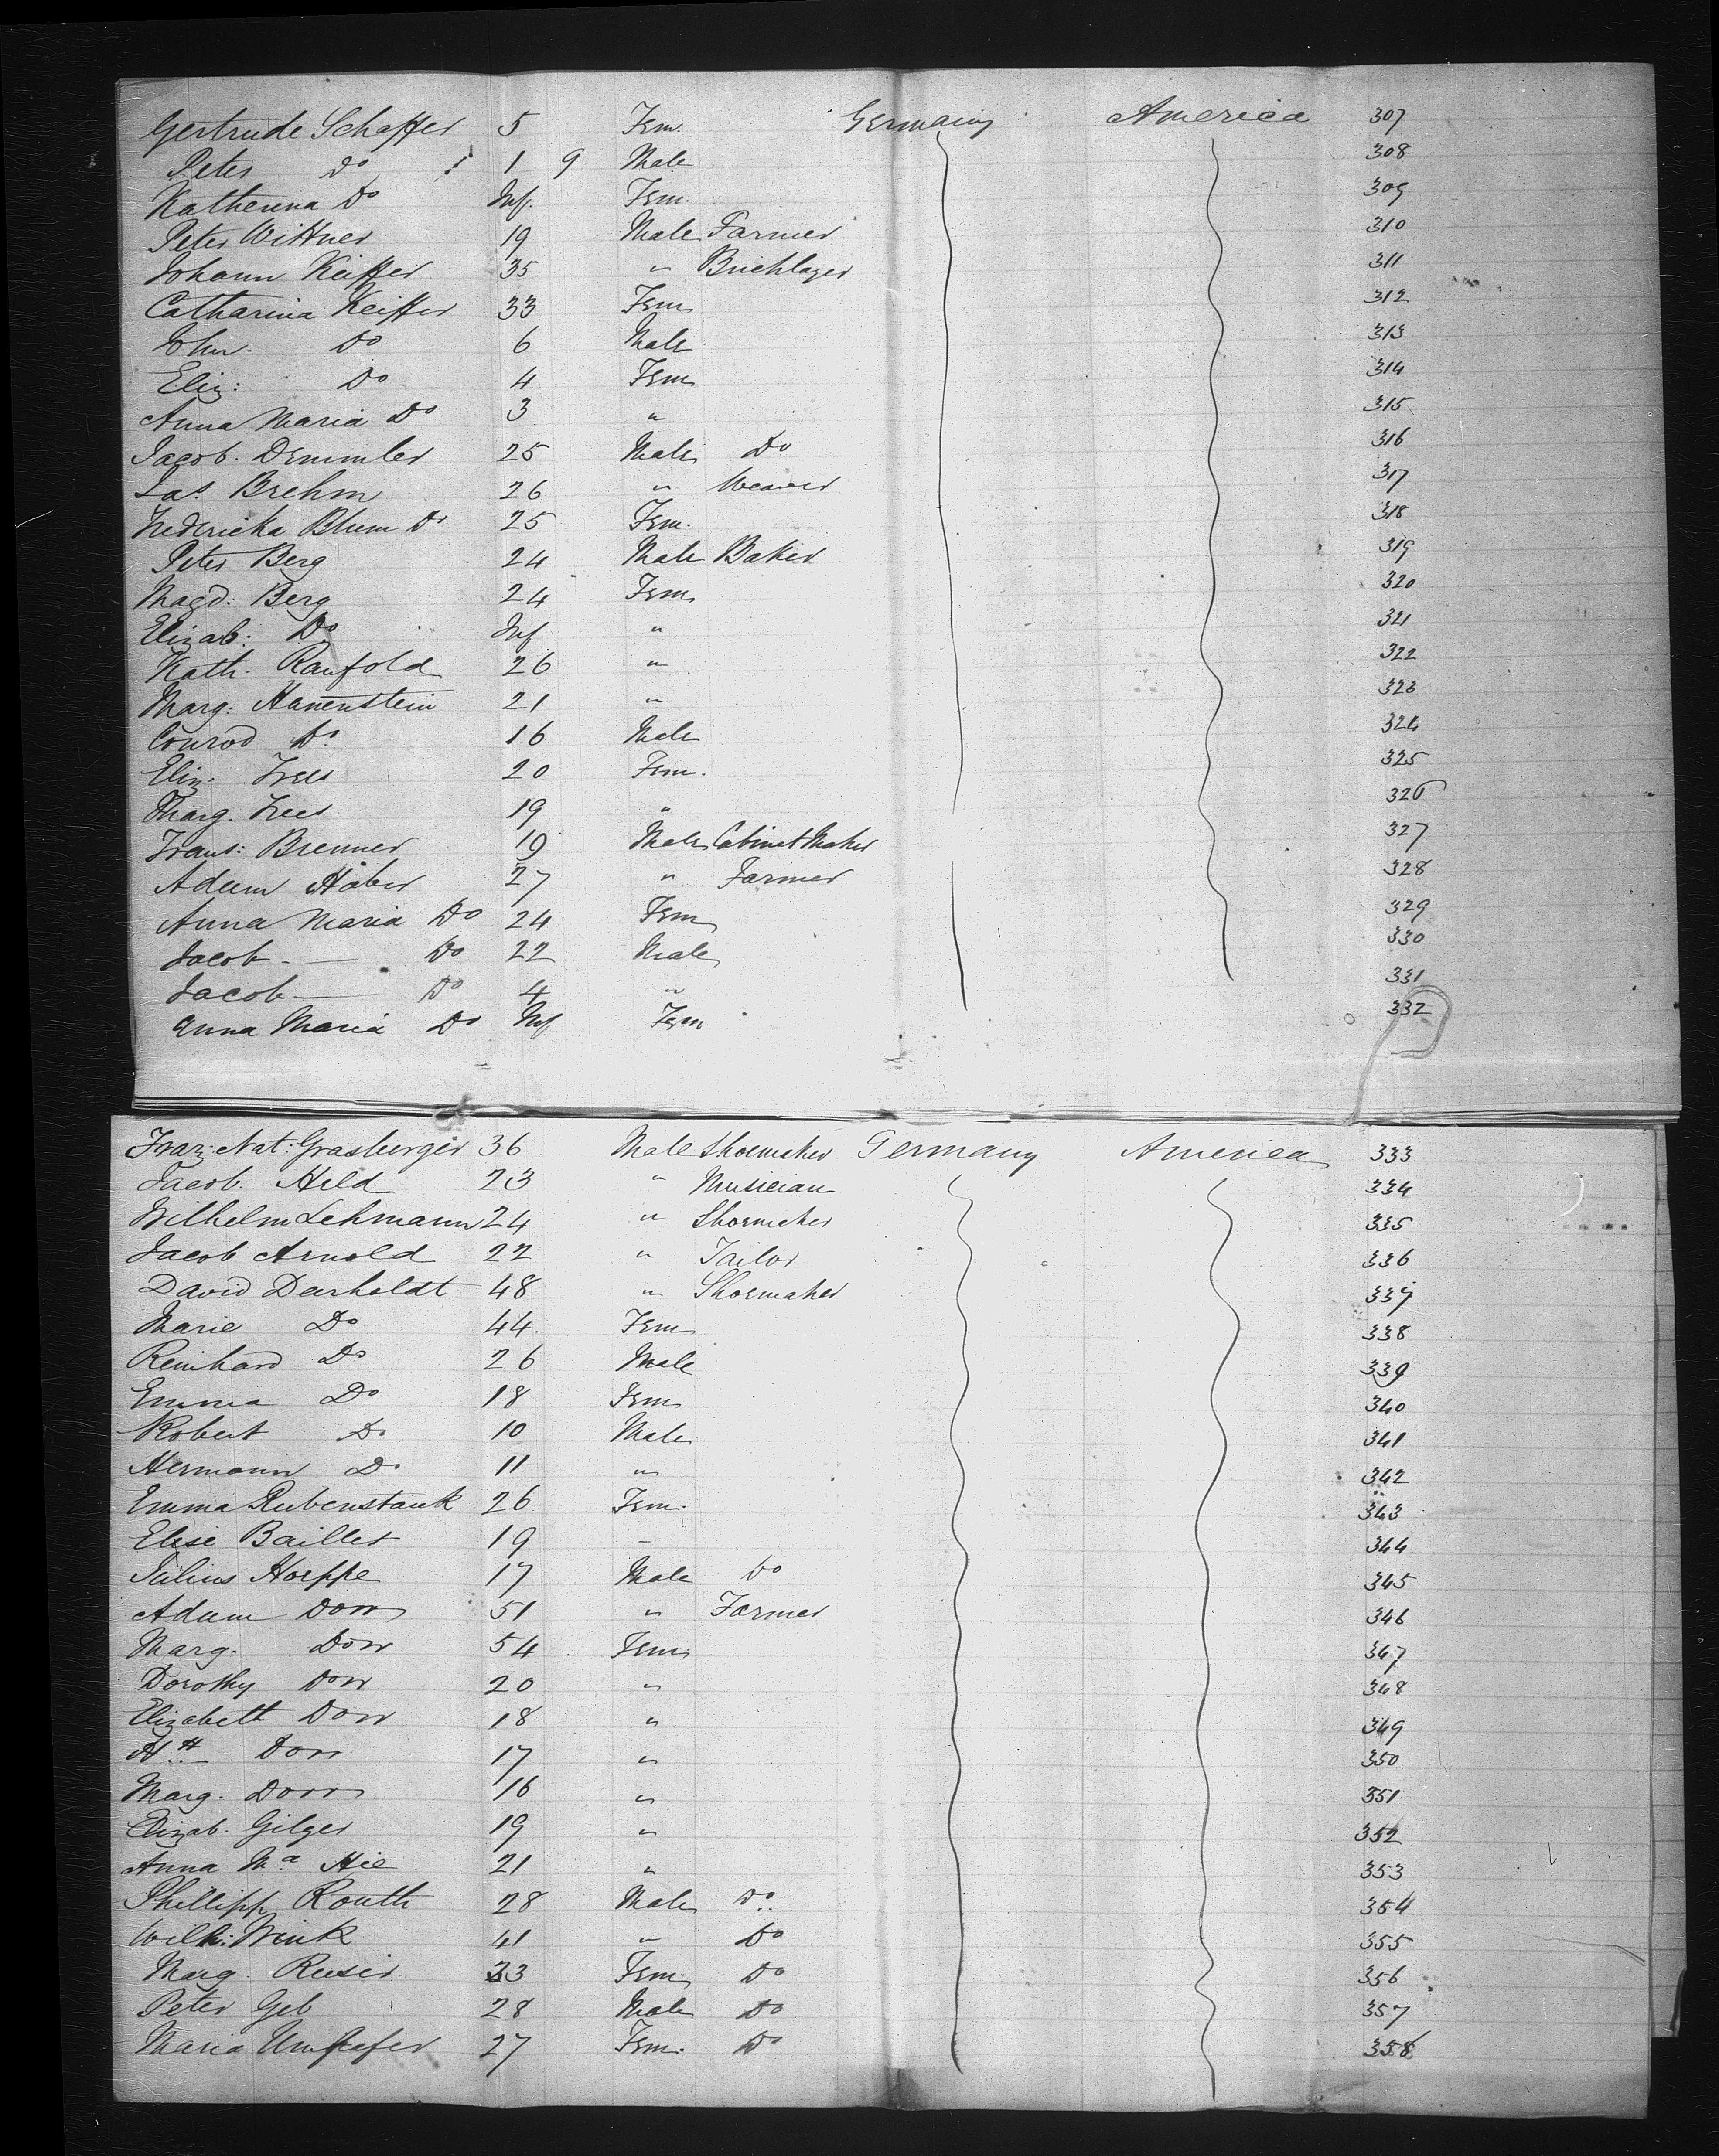 Gertrude Schaffer 5 Fem. Germany America 307
Peter Do 1 9 Male 308
Katherina Do Inf. Fem. 309
Peter Wittner 19 Male Farmer 310
Johann Keiffer 35 " Bricklayer 311
Catharina Keiffer 33 Fem 312
John. Do 6 Male 313
Eliz: Do 4 Fem 314
Anna Maria Do 3 " 315
Jacob. Demmler 25 Male Do 316
Jas. Brehm 26 " Weaver 317
Fredericka Blum Do 25 Fem. 318
Peter Berg 24 Male Baker 319
Magd: Berg 24 Fem 320
Elizab: Do Inf " 321
Kath. Ranfold 26 " 322
Marg: Hanenstein 21 " 323
Conrod Do. 16 Male 324
Eliz: Frees 20 Fem. 325
Marg. Frees 19 " 326
Frans: Brenner 19 Male Cabinet Maker 327
Adam Haber 27 " Farmer 328
Anna Maria Do 24 Fem 329
Jacob - Do 22 Male 330
Jacob - Do 4 " 331
Anna Maria Do Inf Fem 332
Franz: Nat: Grasberger 36 Male Shoemaker Germany America 333
Jacob. Held 23 " Musician 334
Wilhelm Lehmann 24 " Shoemaker 335
Jacob Arnold 22 " Tailor 336
David Darholdt 48 " Shoemaker 337
Marie Do 44. Fem 338
Reinhard Do 26 Male 339
Emma Do 18 Fem 340
Robert Do 10 Male 341
Hermann Do 11 " 342
Emma Rubenstauk 26 Fem. 343
Elise Bailler 19 - 344
Julius Hoeppe 17 Male Do 345
Adam Dorr 51 " Farmer 346
Marg. Dorr 54 Fem 347
Dorothy Dorr 20 " 348
Elizabeth Dorr 18 " 349
Dorr 17 " 350
Marg. Dorr 16 " 351
Elizab. Gilger 19 " 352
Anna Ma Hie 21 " 353
Phillipp Routh 28 Male Do.. 354
Wilh: Wink 41 " Do 355
Marg. Reeser 33 Fem Do 356
Peter Geb 28 Male Do 357
Maria 27 Fem. Do 358